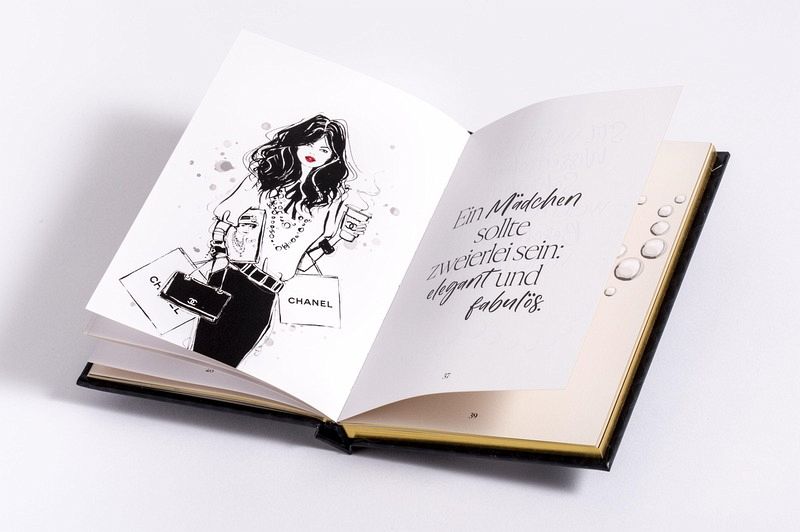 CHANEL
Ein Mädchen
sollte
zweierlei sein:
elegant und
fabulös.
37
39